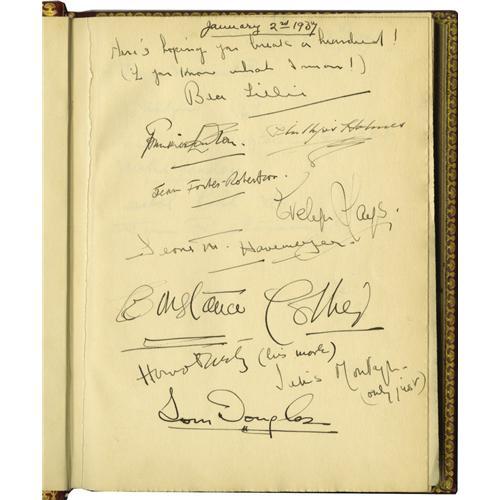 January 2nd 1937
Here's hoping you break a hundred!
(if you know what I mean!)
Bea Lillie
Phillips Holmes
Jean Forbes-Robertson.
Evelyn Laye.
Leonie M. Havemeyer.
Constance Collier
(his mark)
(only just)
Tom Douglas